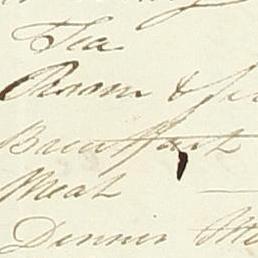 Tea
Room &
Breakfast
Meat
Dinner